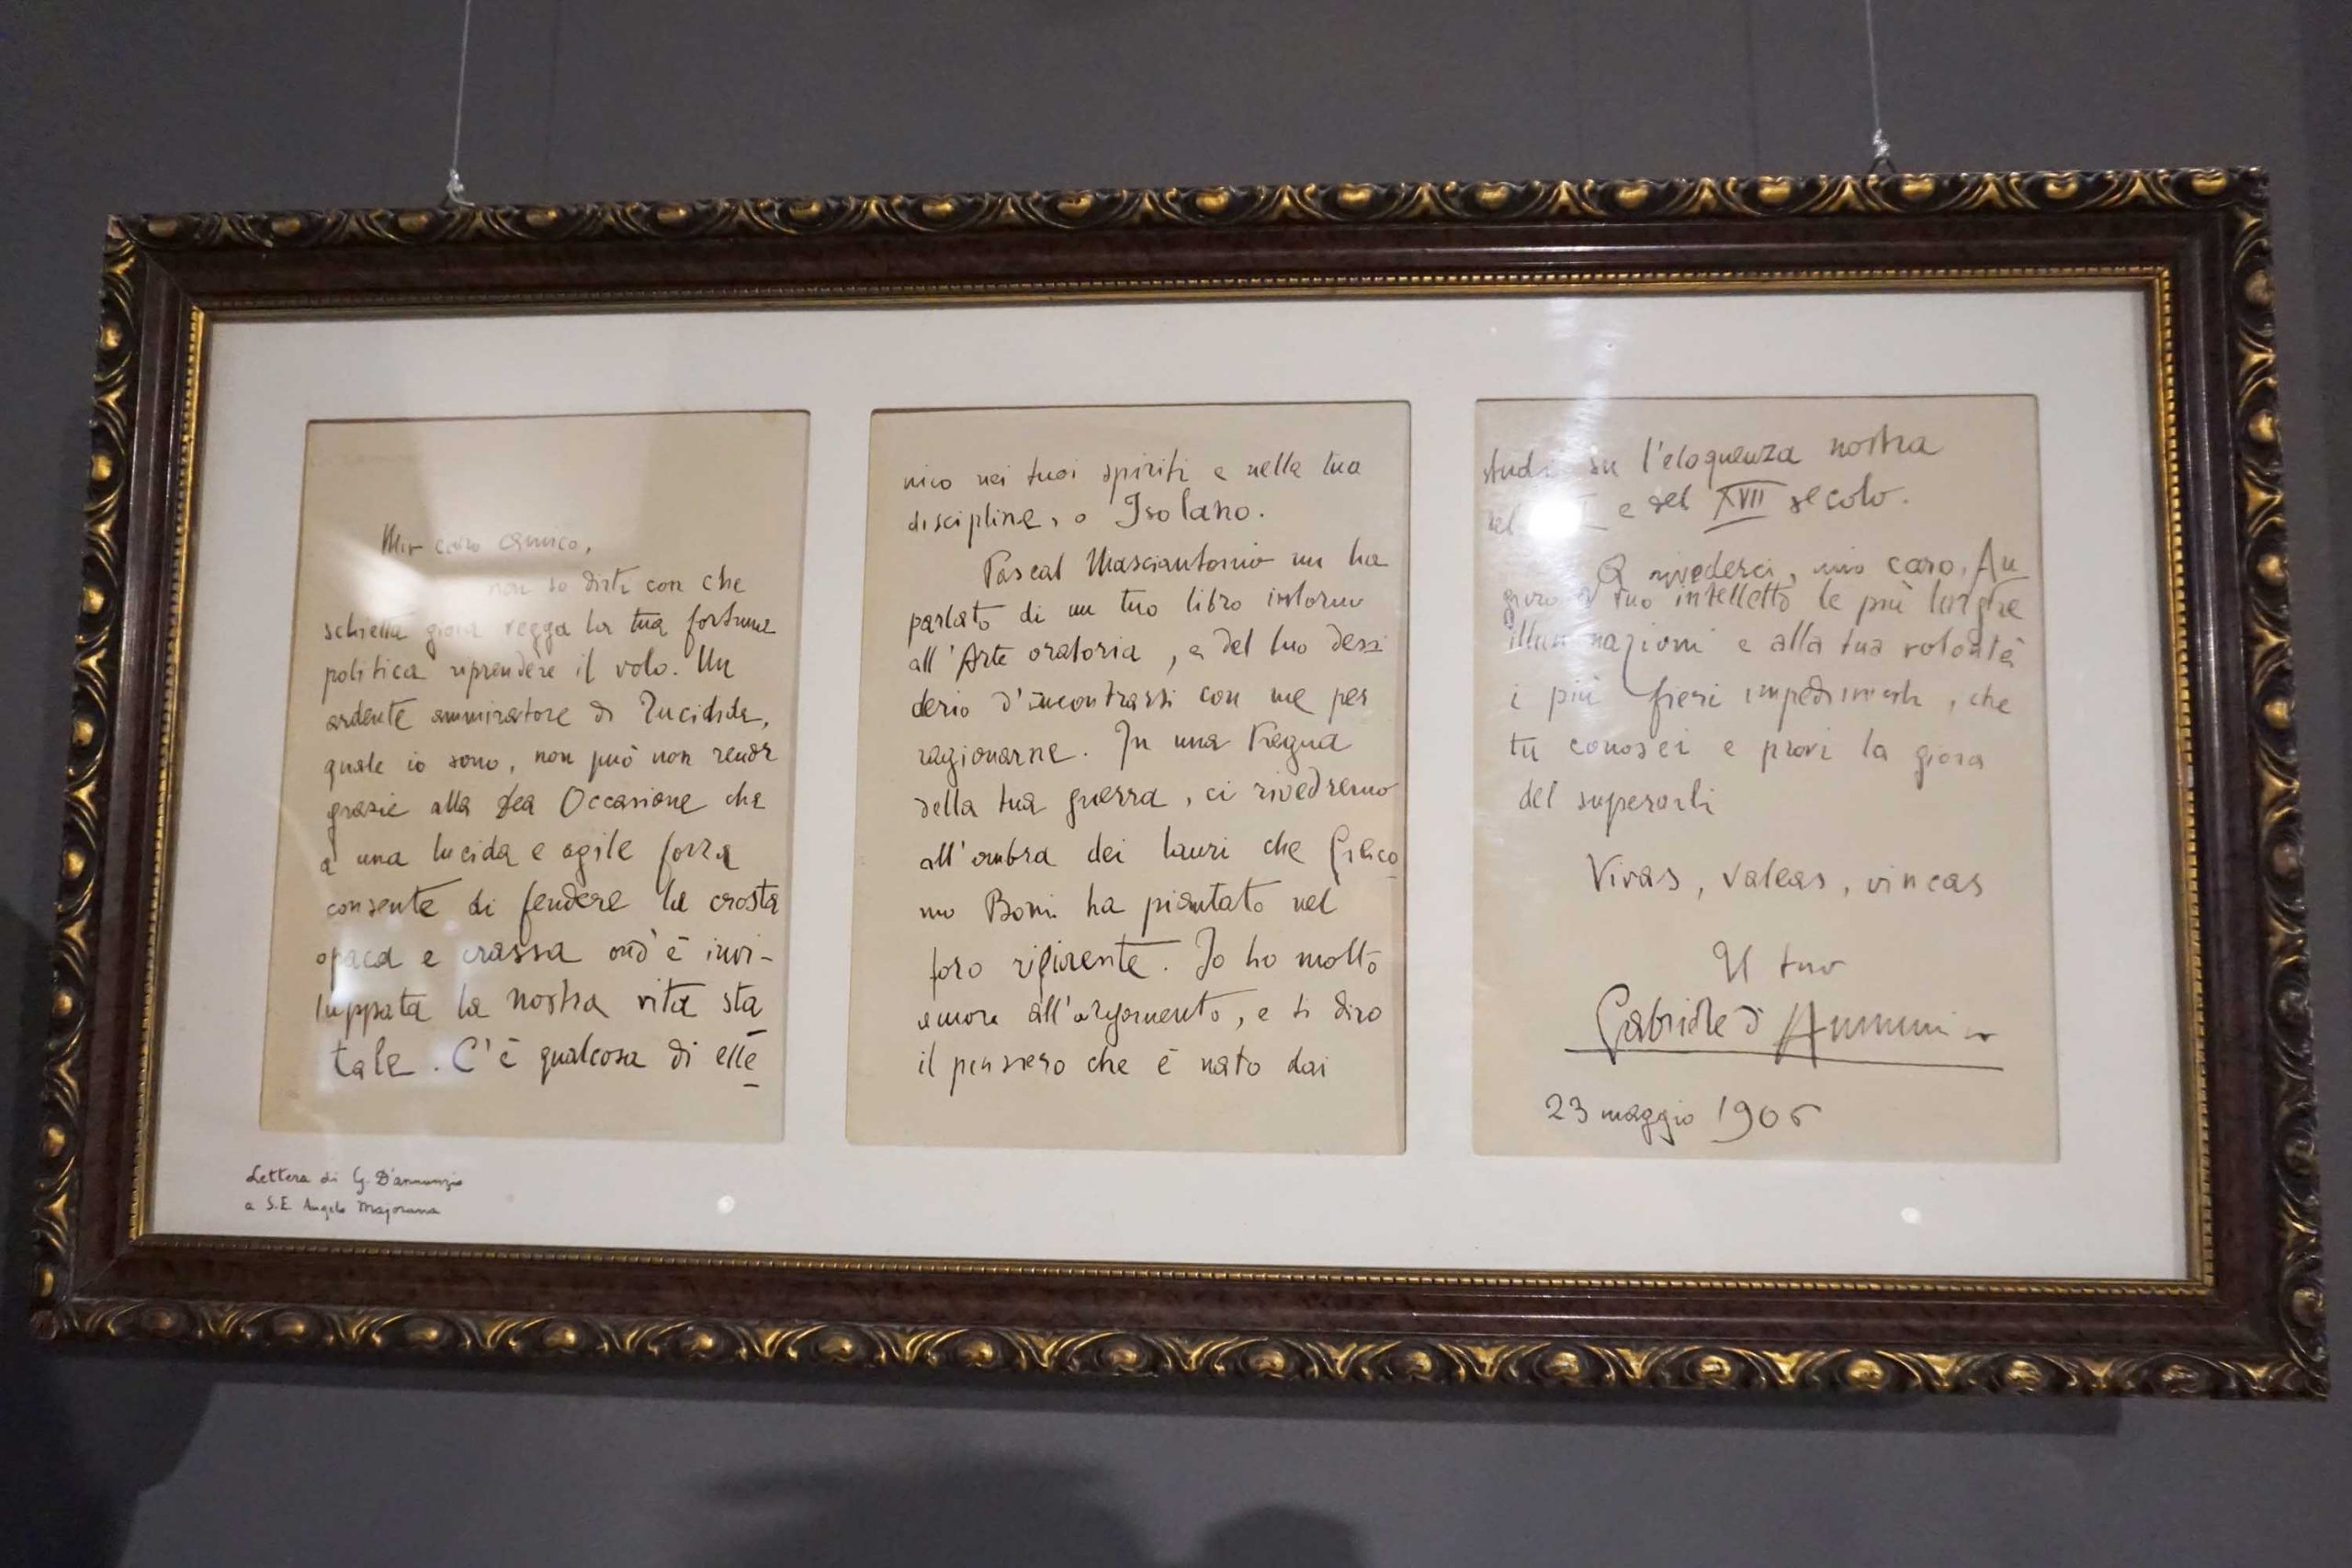 Mio caro amico,
non so dirti con che
schietta gioia vegga la tua fortuna
politica riprendere il volo. Un
ardente ammiratore di Tucidide,
quale io sono, non può non render
grazie alla Dea Occasione che
a una lucida e agile forza
consente di fendere la crosta
opaca e crassa ond'è invi-
luppata la nostra vita sta
tale. C'è qualcosa di elle
nico nei tuoi spiriti e nella tua
discipline, o Isolano.
Pascal Masciantonio mi ha
parlato di un tuo libro intorno
all'Arte oratoria, e del tuo desi
derio d'incontrarsi con me per
ragionarne. In una tregua
della tua guerra, ci rivedremo
all'ombra dei lauri che Giaco
mo Boni ha piantato nel
foro rifiorente. Io ho molto
amore all'argomento, e ti dirò
il pensiero che è nato dai
studi su l'eloquenza nostra
del e del XVII secolo.
A rivederci, mio caro. Au
guro al tuo intelletto le più larghe
illuminazioni e alla tua volontà
i più fieri impedimenti, che
tu conosci e provi la gioia
del superarli
Vivas, valeas, vincas
Il tuo
Gabriele d'Annunzio
23 maggio 1906
Lettera di G. D'annunzio
a S.E. Angelo Majorana